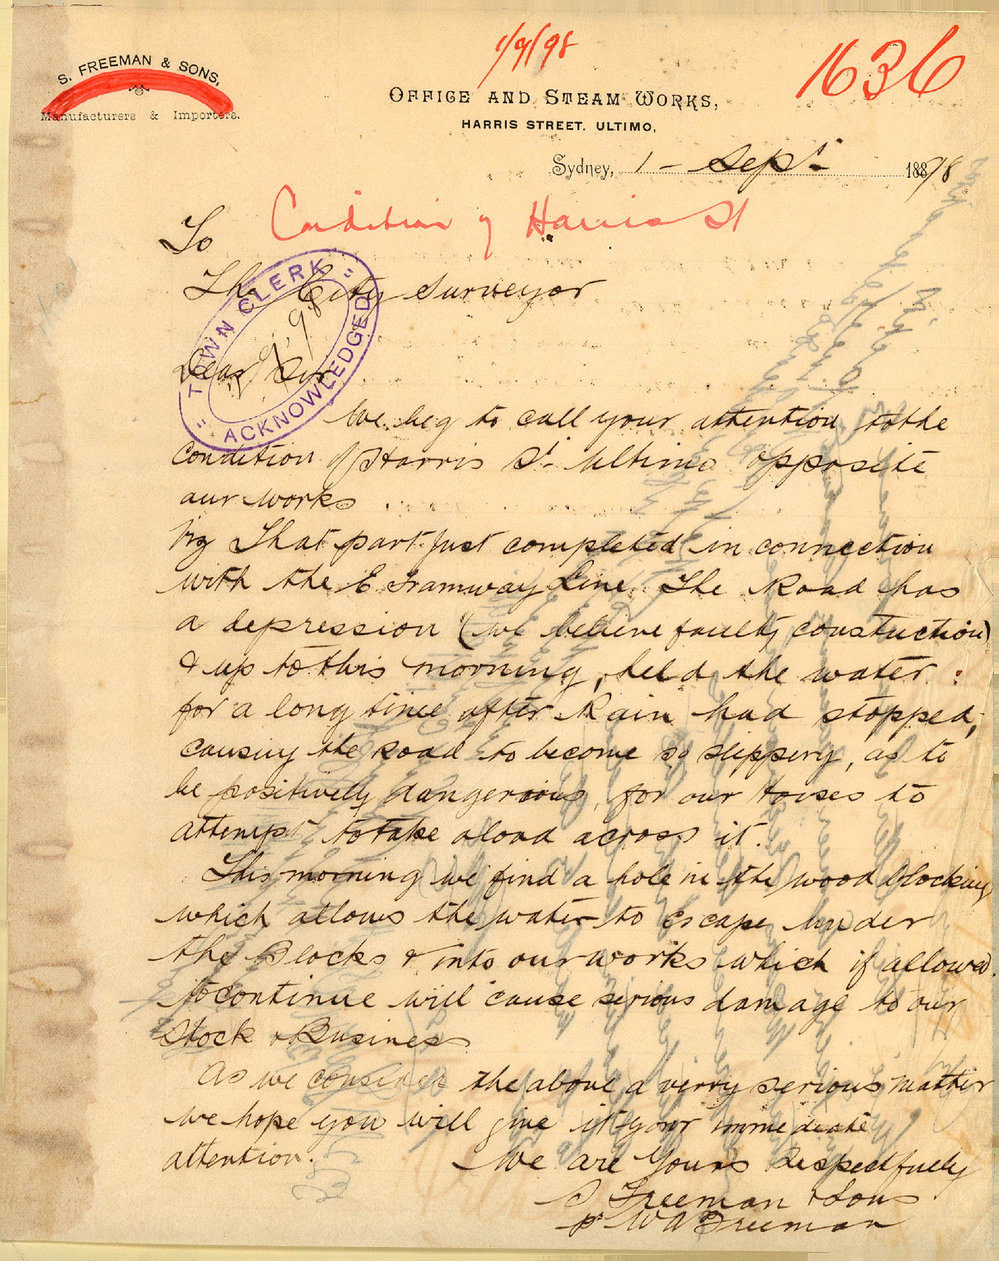 1/9/98
1636
S. FREEMAN & SONS,
Manufacturers & Importers.
OFFICE AND STEAM WORKS,
HARRIS STREET, ULTIMO,
Sydney, 1 - Sept. 1898
Condition of Harris St
To
The City Surveyor
TOWN CLERK
ACKNOWLEDGED
Dear Sir
We beg to call your attention to the
condition of Harris St. Ultimo opposite
our works.
Viz That part just completed in connection
with the E Tramway Line. The Road has
a depression (we believe faulty constuction)
& up to this morning, held the water
for a long time after Rain had stopped,
causing the Road to become so slippery, as to
be positively dangerous, for our horses to
attempt to take a load across it.
This morning we find a hole in the wood blocking
which allows the water to escape under
the Blocks & into our works which if allowed
to continue will cause serious damage to our
Stock & Business
As we consider the above a verry serious matter
we hope you will give it your immediate
attention.
We are Yours Respectfully
S Freeman & Sons
pr W A Freeman